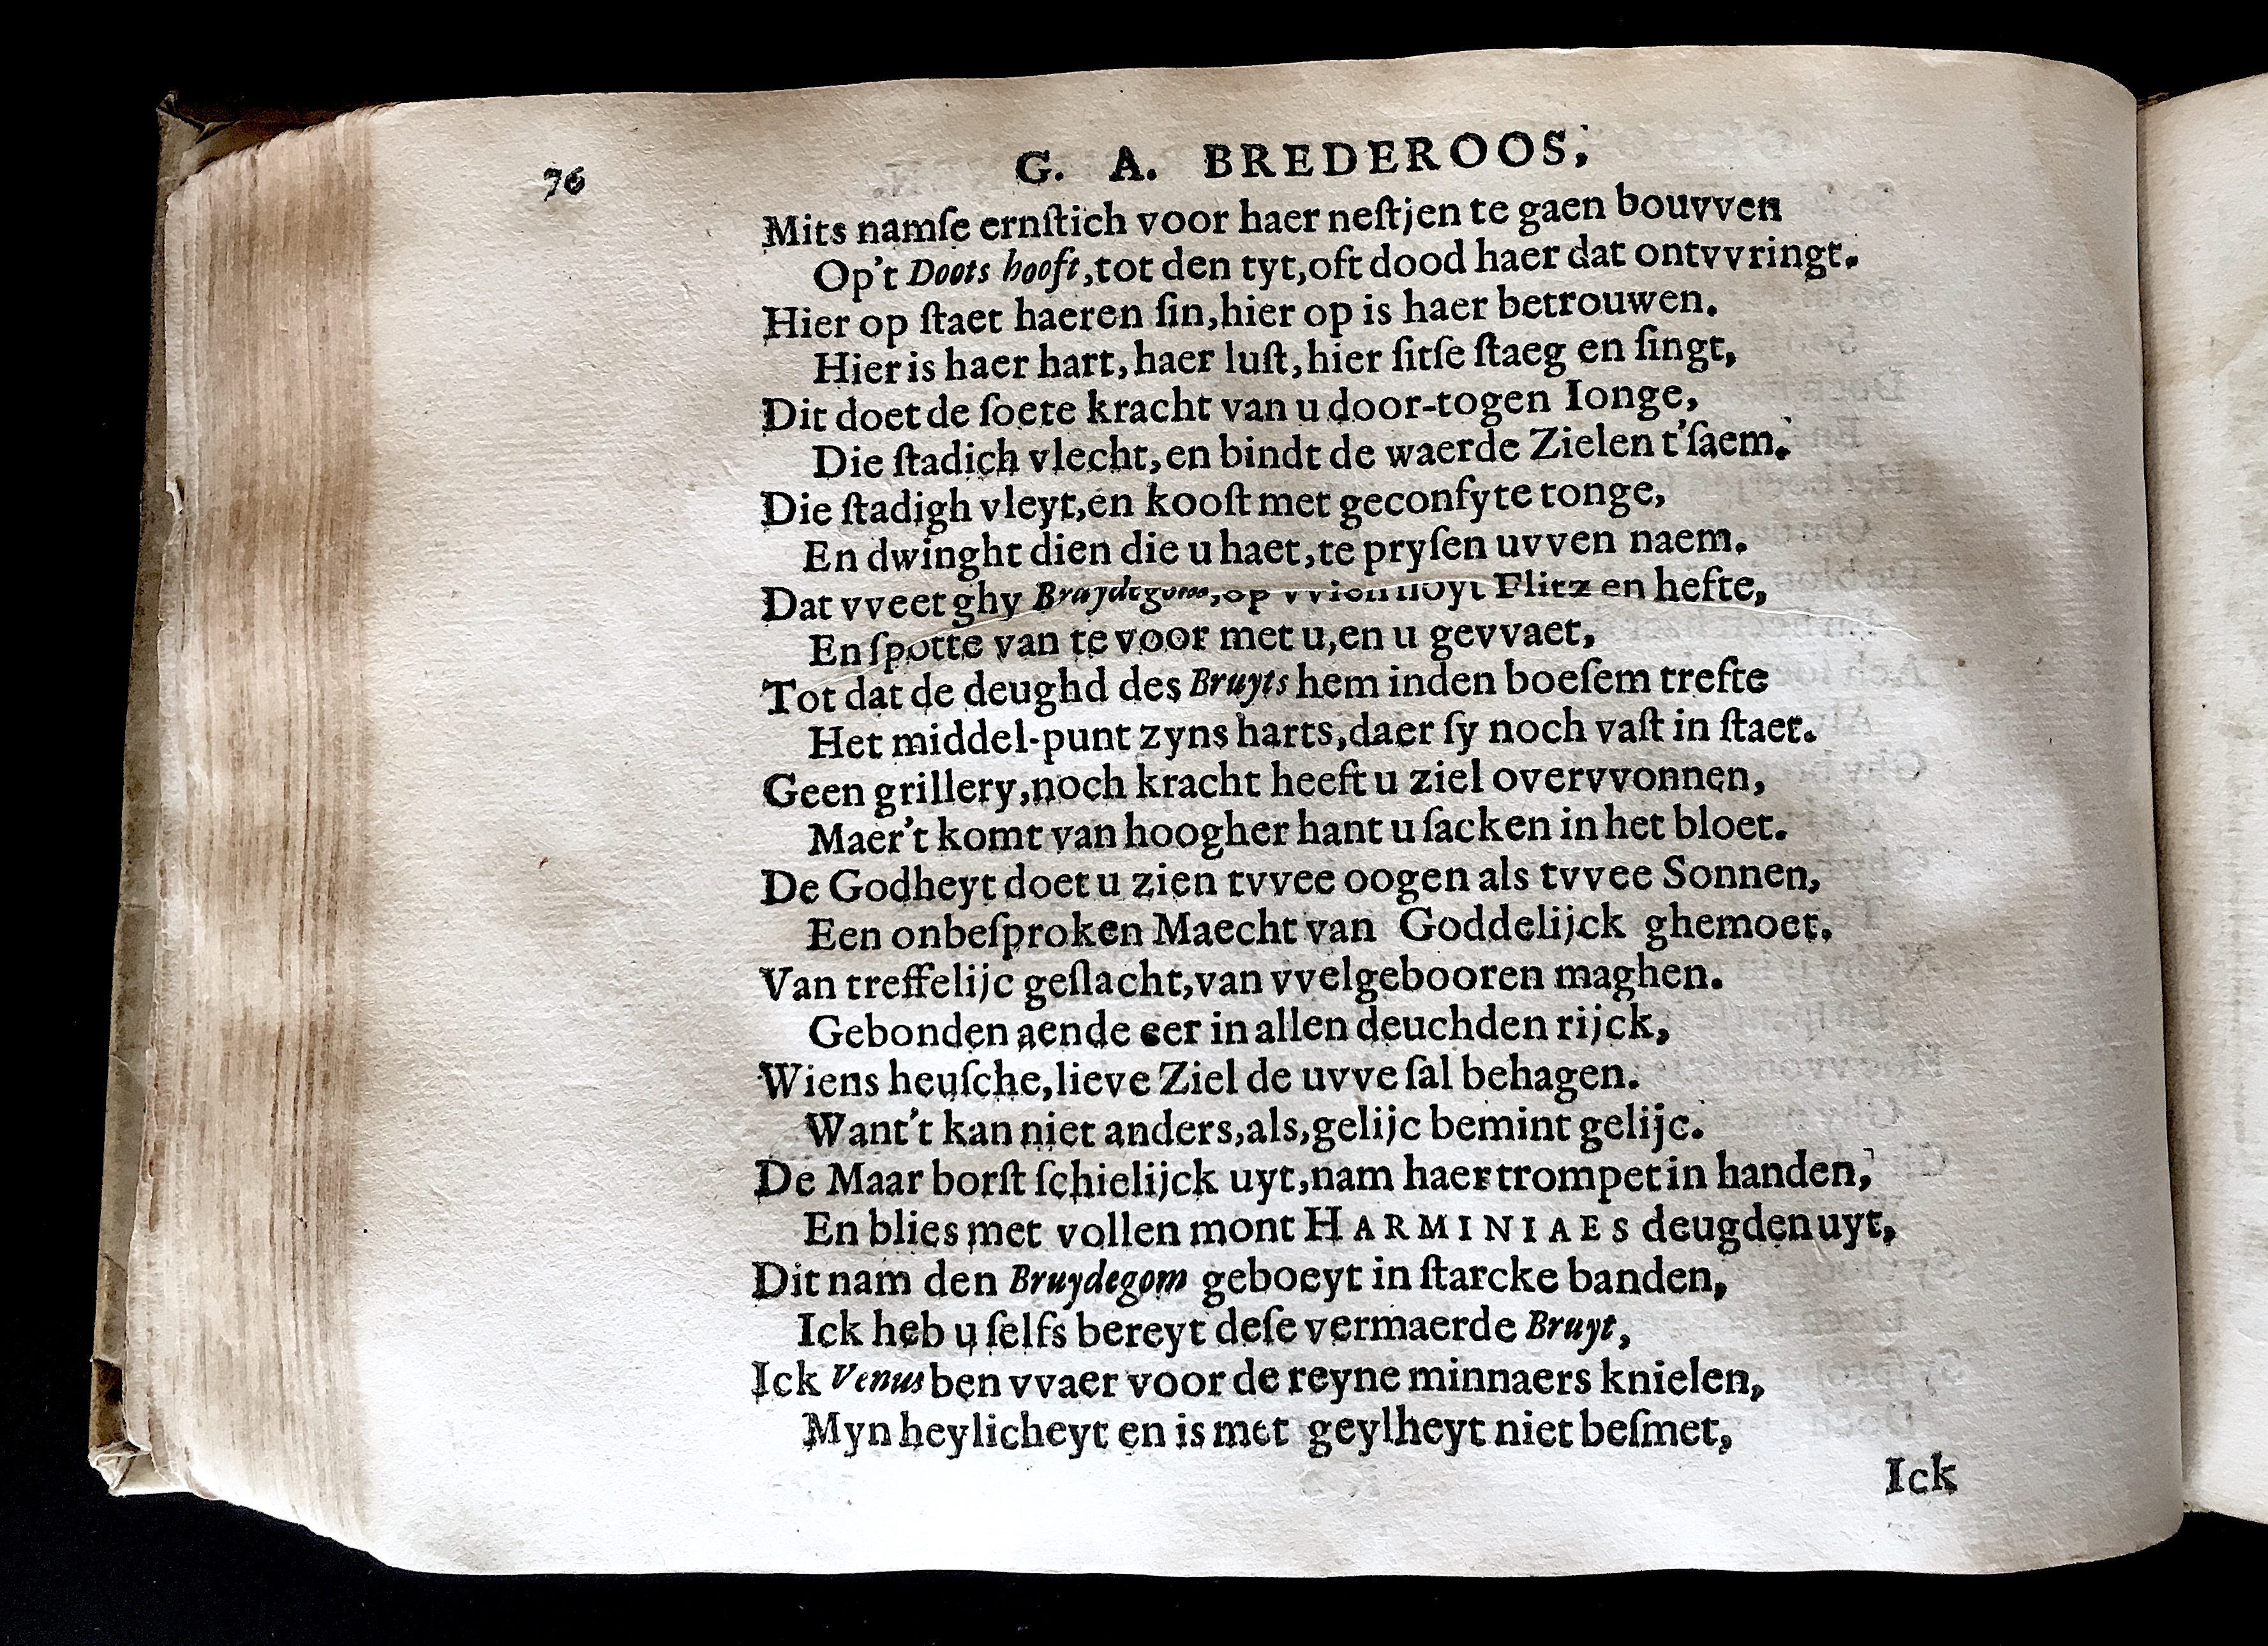 76
G. A. BREDEROOS,
Mits namſe ernſtich voor haer neſtjen te gaen bouvven
Op't Doots hooft, tot den tyt, oft dood haer dat ontvvringt.
Hier op ſtaet haeren ſin, hier op is haer betrouwen.
Hier is haer hart, haer luſt, hier ſitſe ſtaeg en ſingt,
Dit doet de ſoete kracht van u door-togen Ionge,
Die ſtadich vlecht, en bindt de waerde Zielen t'ſaem.
Die ſtadigh vleyt, en kooſt met geconfyte tonge,
En dwinght dien die u haet, te pryſen uvven naem.
Dat vveet ghy Bruydegom, op Flitz en hefte,
En ſpotte van te voor met u, en u gevvaet,
Tot dat de deughd des Bruyts hem inden boeſem trefte
Het middel-punt zyns harts, daer ſy noch vaſt in ſtaet.
Geen grillery, noch kracht heeft u ziel overvvonnen,
Maer't komt van hoogher hant u ſacken in het bloet.
De Godheyt doet u zien tvvee oogen als tvvee Sonnen,
Een onbeſproken Maecht van Goddelijck ghemoet.
Van treffelijc geſlacht, van vvelgebooren maghen.
Gebonden aende eer in allen deuchden rijck,
Wiens heuſche, lieve Ziel de uvve ſal behagen.
Want't kan niet anders, als, gelijc bemint gelijc.
De Maar borſt ſchielijck uyt, nam haer trompet in handen,
En blies met vollen mont HARMINIAES deugden uyt,
Dit nam den Bruydegom geboeyt in ſtarcke banden,
Ick heb u ſelfs bereyt deſe vermaerde Bruyt,
Ick Venus ben vvaer voor de reyne minnaers knielen,
Myn heylicheyt en is met geylheyt niet beſmet,
Ick